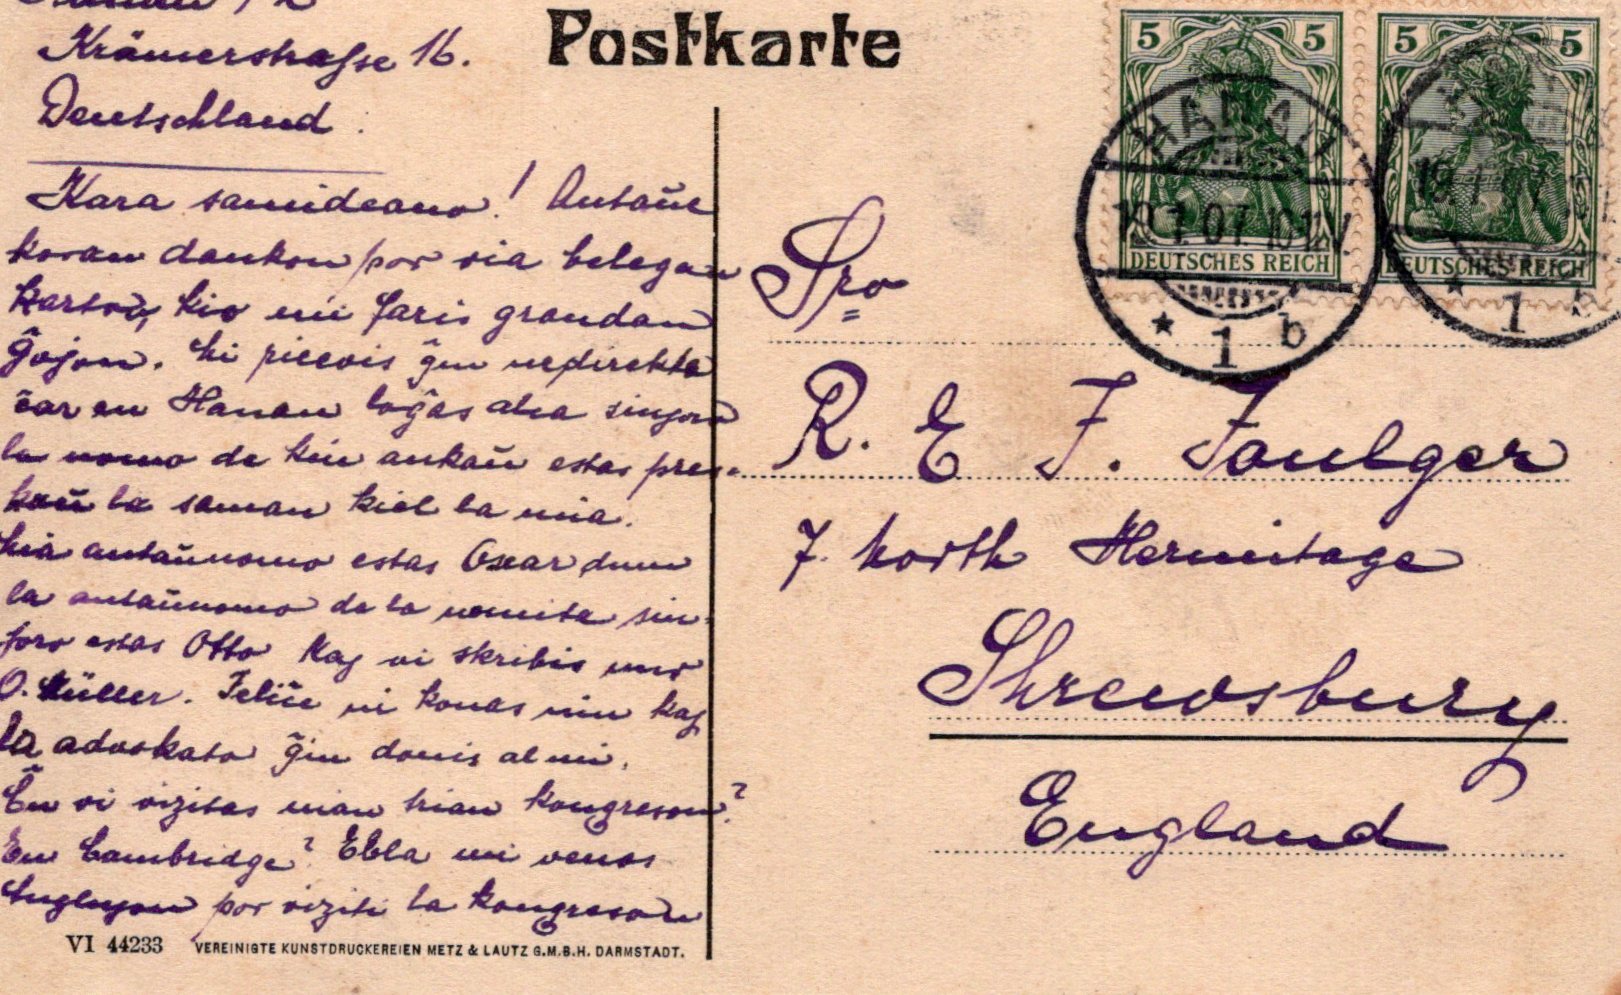 Postkarte
Krämerstraße 16.
Deutschland.
Kara samideano! Antaŭe
koran dankon por via belegan
karton, kio mi faris grandan
ĝojon. Mi ricevis ĝin nedirekte
ĉar en Hanau loĝas alia sinjoro
la nomo de kiu ankaŭ estas pres-
kaŭ la saman kiel la mia.
Mia antaŭnomo estas Oscar dum
la antaŭnomo de la nomita sin-
joro estas Otto kaj vi skribis
O. Müller. Feliĉe ni konas nin kaj
la advokato ĝin donis al mi.
Ĉu vi vizitas nian trian kongreson?
En Cambridge? Ebla mi venos
Anglujon por viziti la kongreson
VI 44233 VEREINIGTE KUNSTDRUCKEREIEN METZ & LAUTZ G.M.B.H. DARMSTADT.
5 5
DEUTSCHES REICH
5 5
DEUTSCHES REICH
HANAU
19.1.07.10-11V
* 1 b
19.1
* 1
Sro
R. E. F. Foulger
7. North Hermitage
Shrewsbury
England